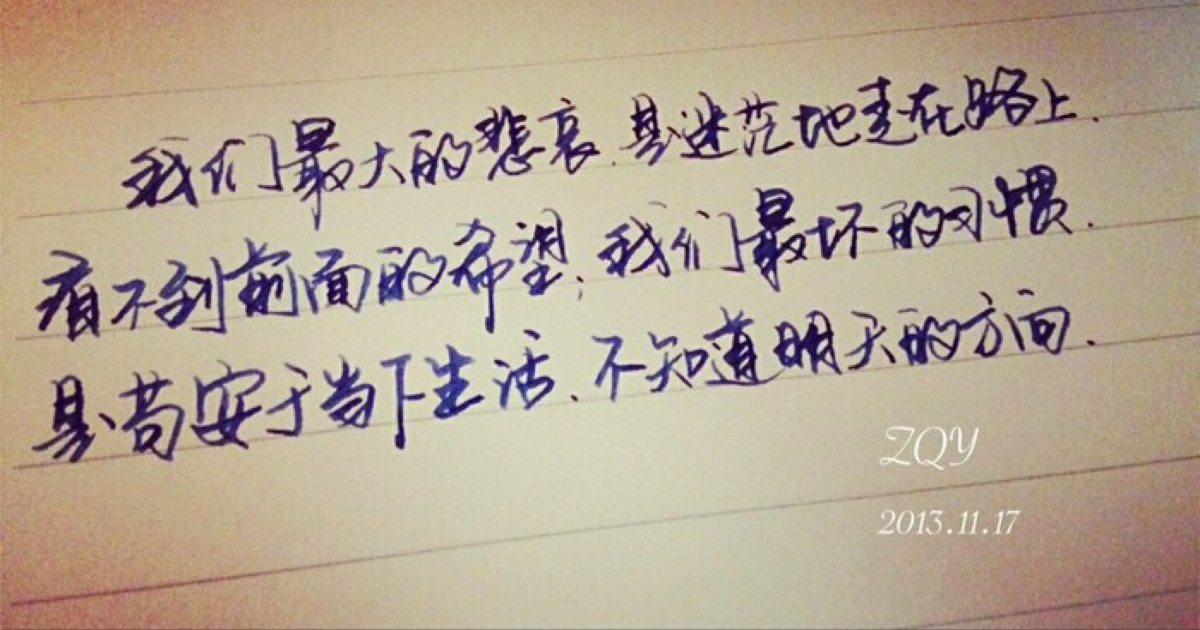 我们最大的悲哀.是迷茫地走在路上.
看不到前面的希望;我们最坏的习惯.
是苟安于当下生活.不知道明天的方向.
ZQY
2013.11.17